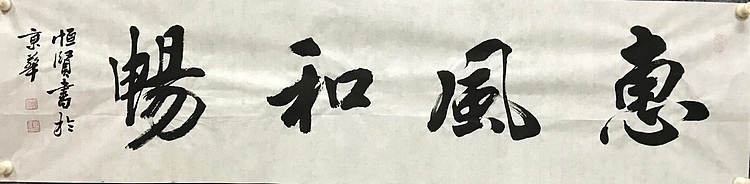 惠風和暢
恒賢書於
京華